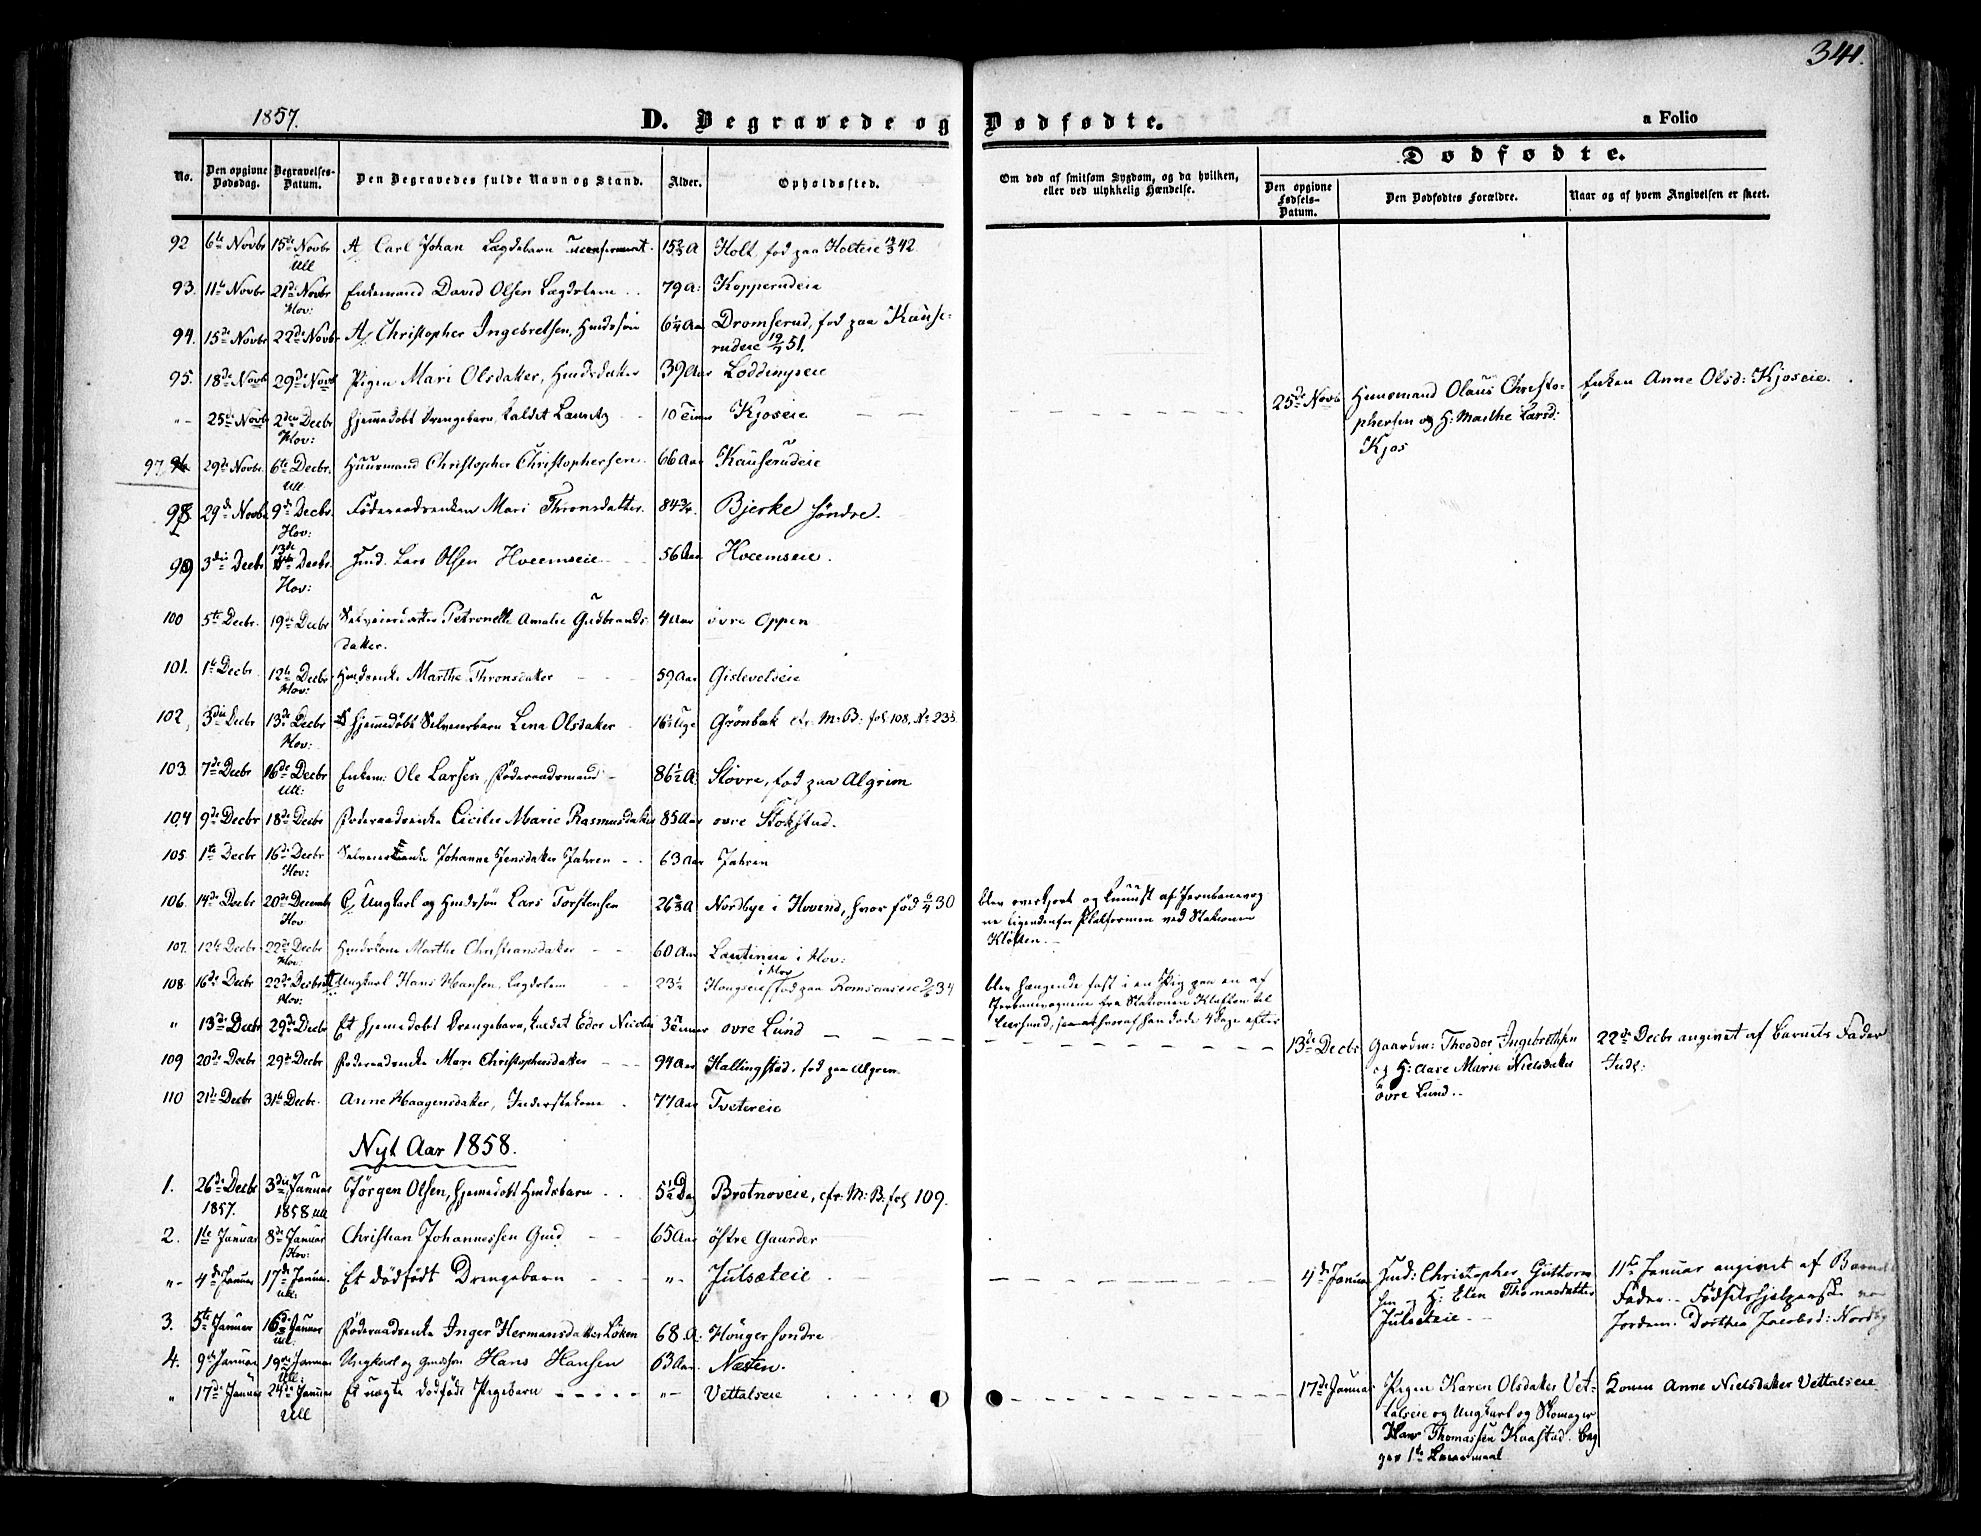 341.
1857.
D. Begravede og Dødfødte.
a Folio
No.
Den opgivne Dødsdag.
Begravelses-Datum.
Den Begravedes fulde Navn og Stand.
Alder.
Opholdssted.
Om død af smitsom Sygdom, og da hvilken, eller ved ulykkelig Hændelse.
Dødfødte.
Den opgivne Fødsels-Datum.
Den Dødfødtes Forældre.
Naar og af hvem Angivelsen er skeet.
92 6te Novbr 15de Novbr Ull Carl Johan Lægdebarn uconfirmeret 15 2/3 A Holt, fød paa Holteie 42.
93. 11te Novbr 21de Novbr Hov: Enkemand David Olsen Lægdslem 79 A: Kopperudeie
94. 15de Novbr 22de Novbr Christopher Ingebretsen, Huusssøn 6 1/4 Aar Dromserud, fød paa Kauserudeie 51.
95. 18de Novb 29de Novb Pigen Mari Olsdatter, Huusdatter 39 Aar Loddingseie
"- 25de Novbr 2den Decbr Hov: hjemmedøbt Drengebarn, kaldet Lauritz 10 Timer Kjoseie
25de Novb Huusmand Olaus Christophersen og H: Marthe Larsd: Kjos
Enken Anne Olsd: Kjoseie.
97. 29de Novbr. 6te Decbr. Ull Huusmand Christopher Christophersen 66 Aar Kauserudeie
98 29de Novbr 9de Decbr. Hov: Føderaadsenken Mari Thronsdatter. 84 3/4. Bjerke søndre.
99 3die Decbr 13de Decbr. Hov: Hmd. Lars Olsen Hveemseie 56 Aar Hveemseie.
100 5te Decbr. 19de Decbr Selveierdatter Petronelle Amalie Gudbrandsdatter. 4 Aar øvre Oppen
101. 1te Decbr. 12te Decbr Hov: Huusenke Marthe Thronsdatter 59 Aar Gislevolseie
102, 3die Decbr 13de Decbr Hov: hjemmedøbt Selveierbarn Lina Olsdatter 16 Uge Grønbak cfr. M: B: fol 108, No 23
103. 7de Decbr 16de Decbr Ull: Enkem: Ole Larsen, Føderaadsmand 86 1/2 A: Støvre, fød paa Algrim
104 9de Decbr 18de Decbr Føderaadsenke Cicilie Marie Rasmusdatter 85 Aar øvre Stokstad.
105. 1te Decbr 16de Decbr Hov: Selveierenke Johanne Jensdatter Jahren 63 Aar Jahren
106. 14de Decbr 20de Decembr Hov Ungkarl og Huussøn Lars Torstensen 26 2/3 A Nordbye i Hovind, hvor fød 30
Blev overkjørt og knuust af Jernbanevognene ligeudenfor Platformen ved Stationen Kløften.
107. 12te Decbr 22de Decbr Hov: Huuskone Marthe Christiansdatter 60 Aar i Hov:
108 16de Decbr 22de Decbr Hov: Ungkarl Hans Hansen, Lægdslem 23 1/2 Hougseie i Hov fød paa Romsaaseie 34
Blev hængende fast i en Pig paa en af Jernbanevognene fra Stationen Kløften til Leersund, hvoraf han døde 4 Dage efter
" 13de Decbr 29de Decbr Et hjemmedøbt Drengebarn, kaldet Edor Nicolai 3 Timer øvre Lund
13de Decbr Gaardm: Theodor Ingebrethsen og H: Aase Marie Nielsdatter øvre Lund.
22de Decbr angivet af Barnets Fader
109 20de Decbr 29de Decbr Føderaadsenke Mari Christophersdatter 94 Aar Hallingstad, fød paa Algrim
110 21de Decbr 31te Decbr. Anne Haagensdatter, Inderstekone 77 Aar Tvetereie
Nyt Aar 1858.
1. 26de Decbr 1857. 3die Januar 1858 Ull Jørgen Olsen, hjemmedøbt Huusbarn 5 1/2 Dag Brotnoveie, cfr: M: B: fol 109.
2. 1te Januar 8de Januar Hov: Christian Johannessen Gmd 65 Aar østre Gaarder
"- 4de Januar 17de Januar. Ull: Et dødfødt Drengebarn "- Julsæteie
4de Januar Hmd: Christopher Guttormsen og H: Elen Thomasdatter Julsæteie
11te Januar angivet af Barnets Fader. Fødselshjelperske var Jordem. Dorthea Jacobsd: Nordby
3. 5te Januar 16de Januar Ull. Føderaadsenke Inger Hermansdatter Løken 68. A. Houger søndre
4. 9de Januar 19de Januar Ull: Ungkarl og Gmdssøn Hans Hansen 63 Aar. Næsten.
" 17de Januar 24de Januar Ull Et uægte dødfødt Pigebarn "- Vettalseie
17de Januar Pigen Karen Olsdatter Vettalseie og Ungkarl og Skomager Hans Thomassen Kaastad. begges 1ste Leiermaal
Konen Anne Nielsdatter Vettalseie